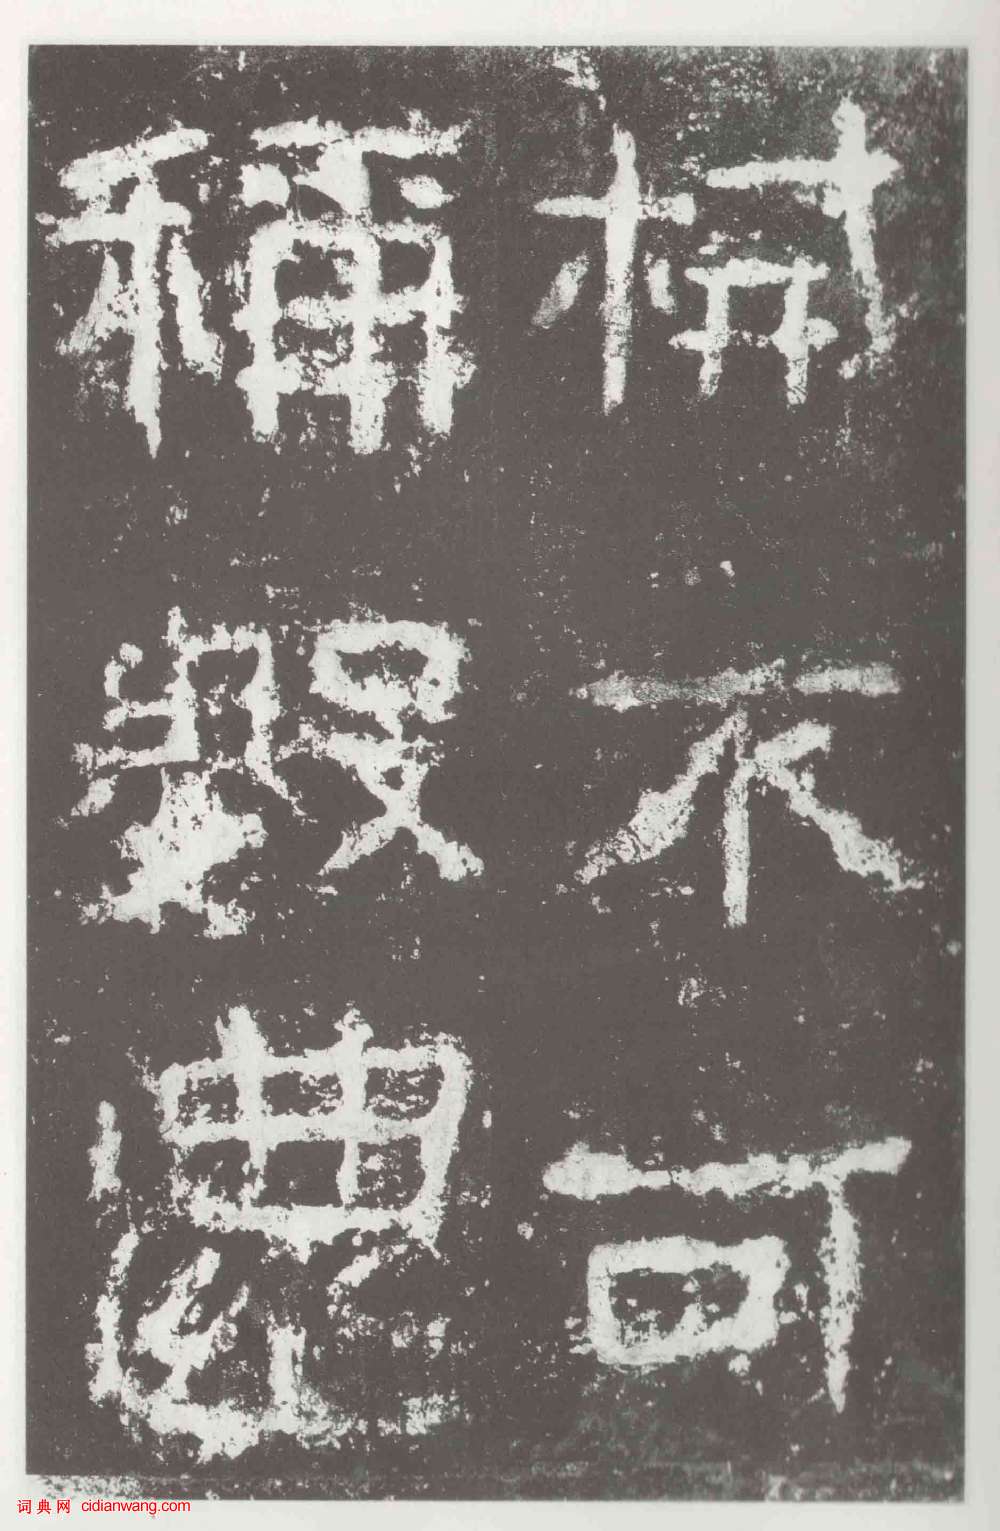 械不可
稱數還
词典网 cidianwang.com